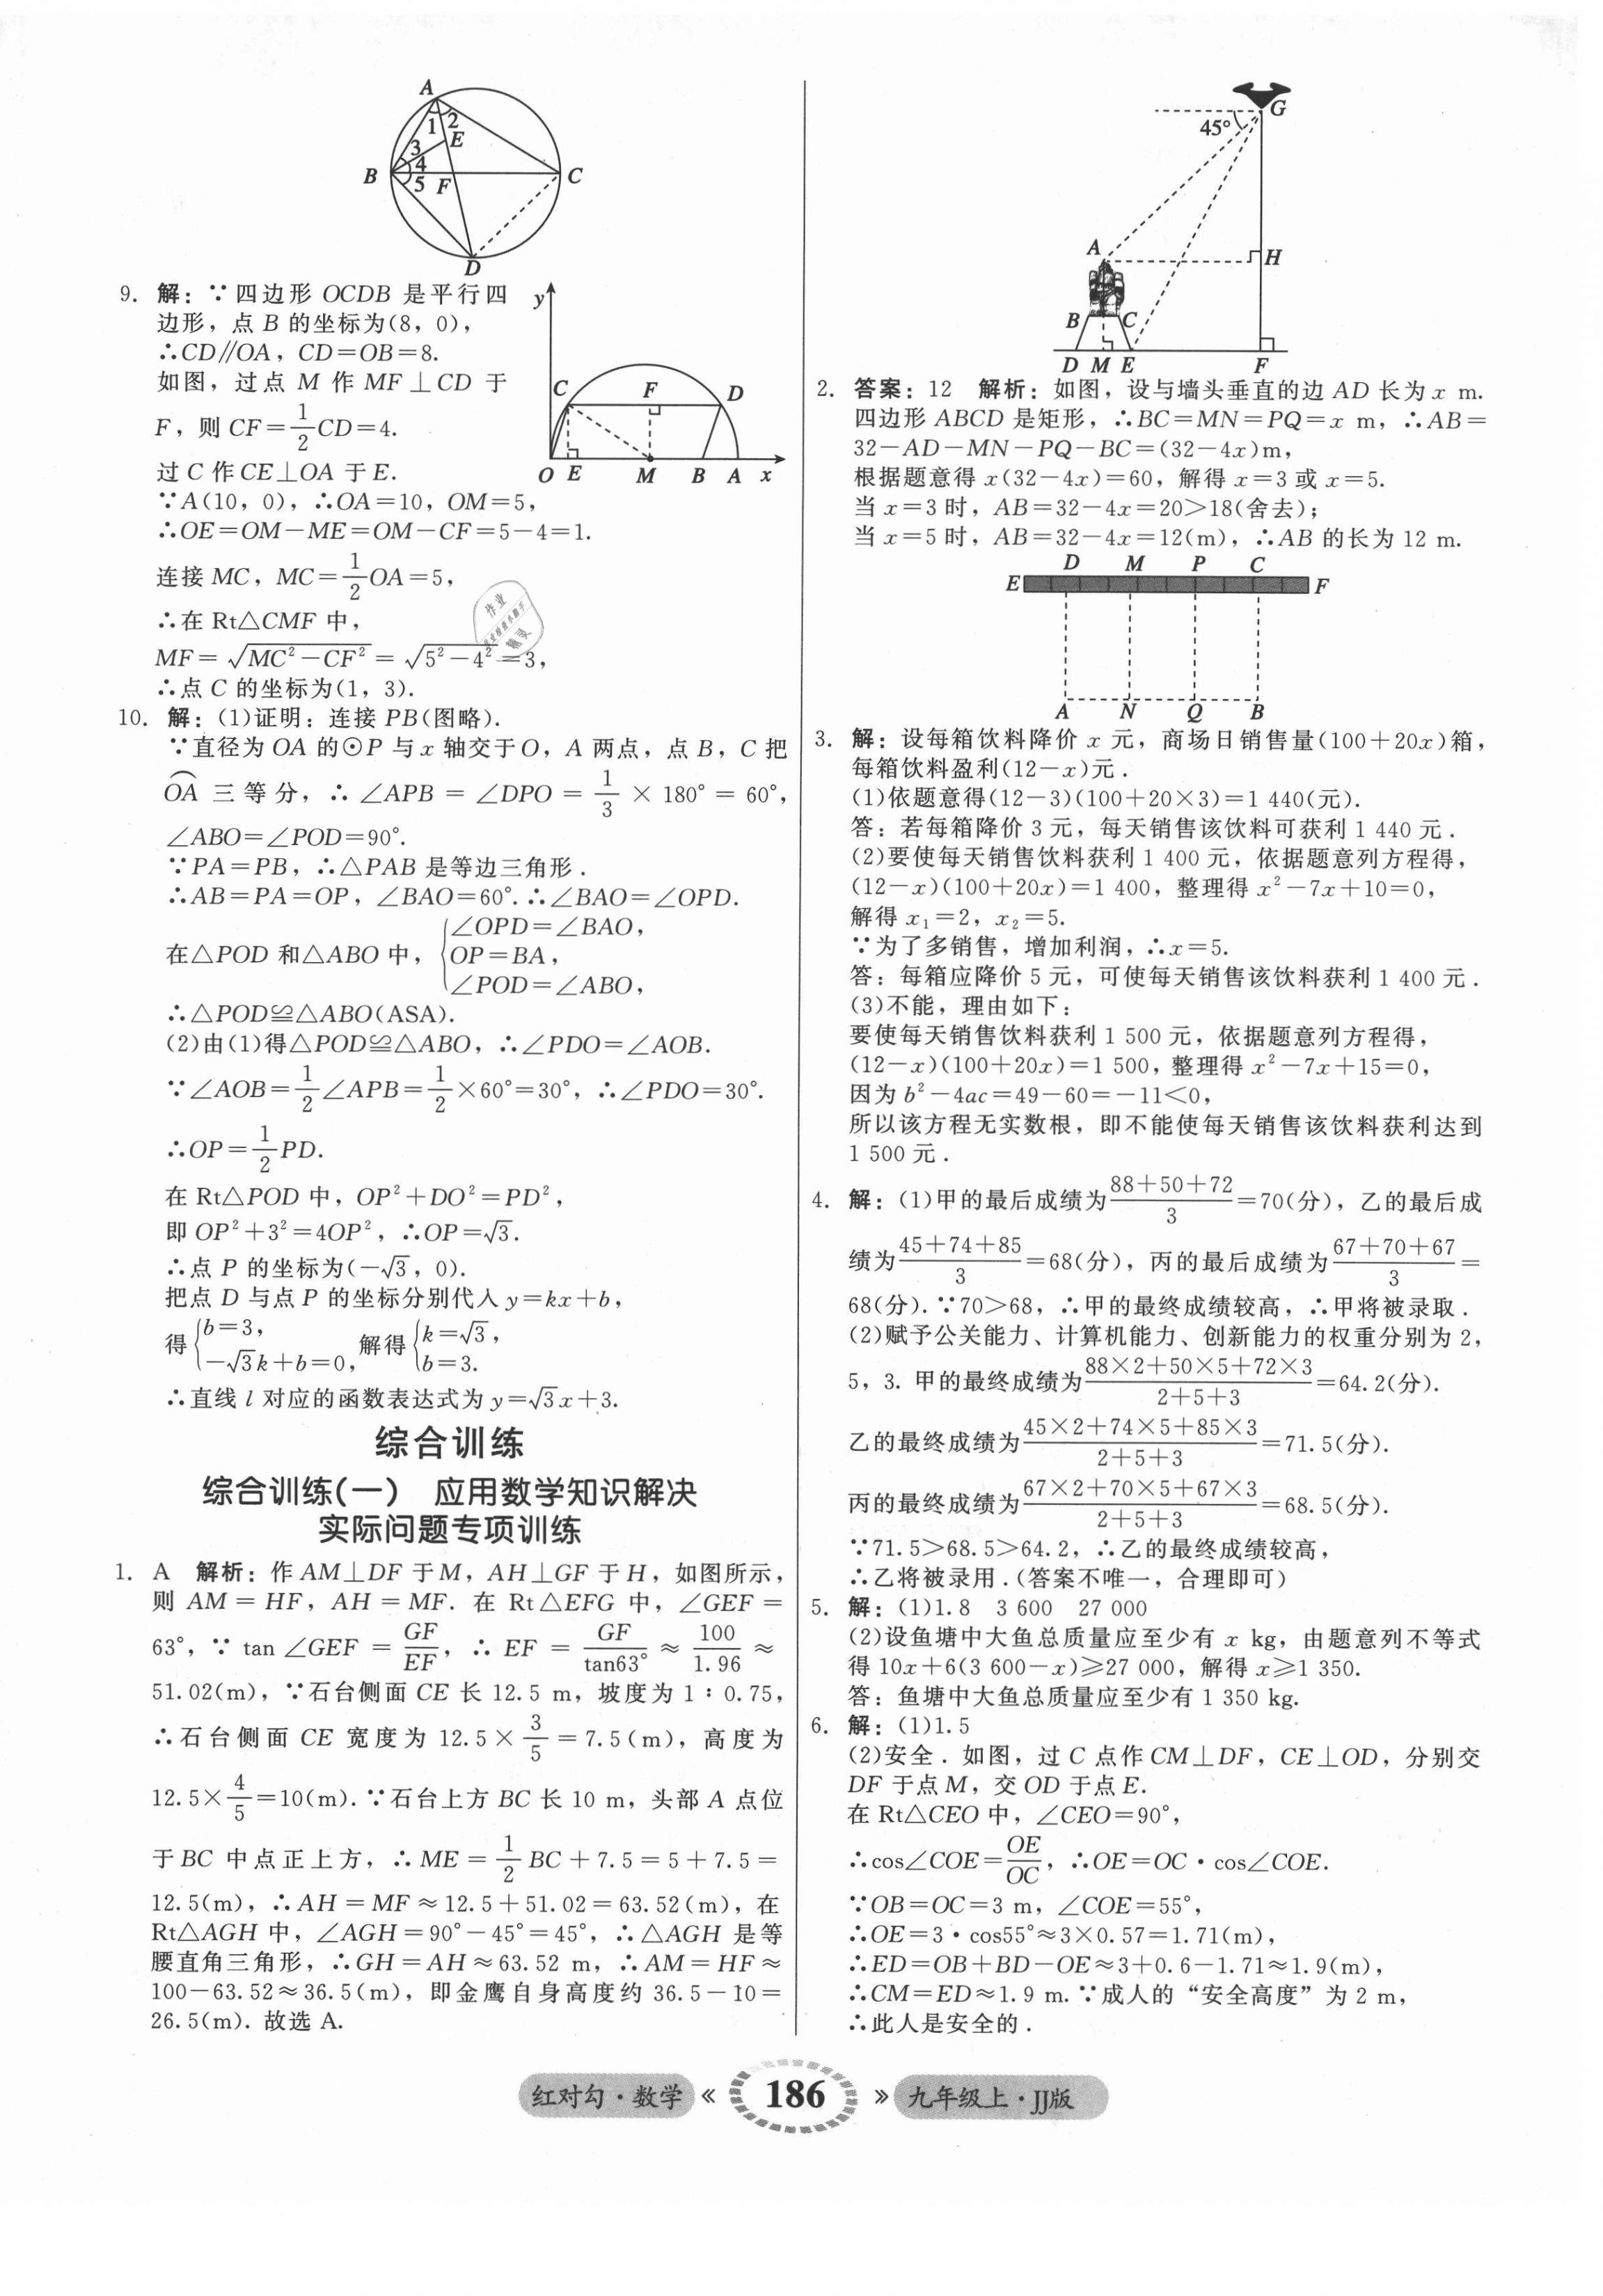 A
1
2
E
3
4
5
B
F
C
D
9. 解：∵四边形 OCDB 是平行四
边形，点 B 的坐标为(8，0)，
∴CD∥OA，CD＝OB＝8.
如图，过点 M 作 MF⊥CD 于
F，则 CF＝1/2 CD＝4.
过 C 作 CE⊥OA 于 E.
∵A(10，0)，∴OA＝10，OM＝5，
∴OE＝OM－ME＝OM－CF＝5－4＝1.
连接 MC，MC＝1/2 OA＝5，
∴在 Rt△CMF 中，
MF＝√(MC²－CF²)＝√(5²－4²)＝3，
∴点 C 的坐标为(1，3).
y
C F D
O E M B A x
10. 解：(1)证明：连接 PB(图略).
∵直径为 OA 的⊙P 与 x 轴交于 O，A 两点，点 B，C 把
⌒OA 三等分，∴∠APB＝∠DPO＝1/3×180°＝60°，
∠ABO＝∠POD＝90°.
∵PA＝PB，∴△PAB 是等边三角形.
∴AB＝PA＝OP，∠BAO＝60°.∴∠BAO＝∠OPD.
在△POD 和△ABO 中，{∠OPD＝∠BAO，
OP＝BA，
∠POD＝∠ABO，
∴△POD≌△ABO(ASA).
(2)由(1)得△POD≌△ABO，∴∠PDO＝∠AOB.
∵∠AOB＝1/2∠APB＝1/2×60°＝30°，∴∠PDO＝30°.
∴OP＝1/2 PD.
在 Rt△POD 中，OP²＋DO²＝PD²，
即 OP²＋3²＝4OP²，∴OP＝√3.
∴点 P 的坐标为(－√3，0).
把点 D 与点 P 的坐标分别代入 y＝kx＋b，
得{b＝3，－√3k＋b＝0，解得{k＝√3，b＝3.
∴直线 l 对应的函数表达式为 y＝√3x＋3.
综合训练
综合训练(一) 应用数学知识解决
实际问题专项训练
1. A 解析：作 AM⊥DF 于 M，AH⊥GF 于 H，如图所示，
则 AM＝HF，AH＝MF. 在 Rt△EFG 中，∠GEF＝
63°，∵tan∠GEF＝GF/EF，∴EF＝GF/tan63°≈100/1.96≈
51.02(m)，∵石台侧面 CE 长 12.5 m，坡度为 1∶0.75，
∴石台侧面 CE 宽度为 12.5×3/5＝7.5(m)，高度为
12.5×4/5＝10(m).∵石台上方 BC 长 10 m，头部 A 点位
于 BC 中点正上方，∴ME＝1/2 BC＋7.5＝5＋7.5＝
12.5(m)，∴AH＝MF≈12.5＋51.02＝63.52(m)，在
Rt△AGH 中，∠AGH＝90°－45°＝45°，∴△AGH 是等
腰直角三角形，∴GH＝AH≈63.52 m，∴AM＝HF≈
100－63.52≈36.5(m)，即金鹰自身高度约 36.5－10＝
26.5(m). 故选 A.
G
45°
A
H
B C
D M E F
2. 答案：12 解析：如图，设与墙头垂直的边 AD 长为 x m.
四边形 ABCD 是矩形，∴BC＝MN＝PQ＝x m，∴AB＝
32－AD－MN－PQ－BC＝(32－4x)m，
根据题意得 x(32－4x)＝60，解得 x＝3 或 x＝5.
当 x＝3 时，AB＝32－4x＝20＞18(舍去)；
当 x＝5 时，AB＝32－4x＝12(m)，∴AB 的长为 12 m.
D M P C
E F
A N Q B
3. 解：设每箱饮料降价 x 元，商场日销售量(100＋20x)箱，
每箱饮料盈利(12－x)元.
(1)依题意得(12－3)(100＋20×3)＝1 440(元).
答：若每箱降价 3 元，每天销售该饮料可获利 1 440 元.
(2)要使每天销售饮料获利 1 400 元，依据题意列方程得，
(12－x)(100＋20x)＝1 400，整理得 x²－7x＋10＝0，
解得 x₁＝2，x₂＝5.
∵为了多销售，增加利润，∴x＝5.
答：每箱应降价 5 元，可使每天销售该饮料获利 1 400 元.
(3)不能，理由如下：
要使每天销售饮料获利 1 500 元，依据题意列方程得，
(12－x)(100＋20x)＝1 500，整理得 x²－7x＋15＝0，
因为 b²－4ac＝49－60＝－11＜0，
所以该方程无实数根，即不能使每天销售该饮料获利达到
1 500 元.
4. 解：(1)甲的最后成绩为(88＋50＋72)/3＝70(分)，乙的最后成
绩为(45＋74＋85)/3＝68(分)，丙的最后成绩为(67＋70＋67)/3＝
68(分).∵70＞68，∴甲的最终成绩较高，∴甲将被录取.
(2)赋予公关能力、计算机能力、创新能力的权重分别为 2，
5，3. 甲的最终成绩为(88×2＋50×5＋72×3)/(2＋5＋3)＝64.2(分).
乙的最终成绩为(45×2＋74×5＋85×3)/(2＋5＋3)＝71.5(分).
丙的最终成绩为(67×2＋70×5＋67×3)/(2＋5＋3)＝68.5(分).
∵71.5＞68.5＞64.2，∴乙的最终成绩较高，
∴乙将被录用.(答案不唯一，合理即可)
5. 解：(1)1.8 3 600 27 000
(2)设鱼塘中大鱼总质量应至少有 x kg，由题意列不等式
得 10x＋6(3 600－x)≥27 000，解得 x≥1 350.
答：鱼塘中大鱼总质量应至少有 1 350 kg.
6. 解：(1)1.5
(2)安全. 如图，过 C 点作 CM⊥DF，CE⊥OD，分别交
DF 于点 M，交 OD 于点 E.
在 Rt△CEO 中，∠CEO＝90°，
∴cos∠COE＝OE/OC，∴OE＝OC·cos∠COE.
∵OB＝OC＝3 m，∠COE＝55°，
∴OE＝3·cos55°≈3×0.57＝1.71(m)，
∴ED＝OB＋BD－OE≈3＋0.6－1.71≈1.9(m)，
∴CM＝ED≈1.9 m.∵成人的“安全高度”为 2 m，
∴此人是安全的.
红对勾·数学 《 186 》 九年级上·JJ版